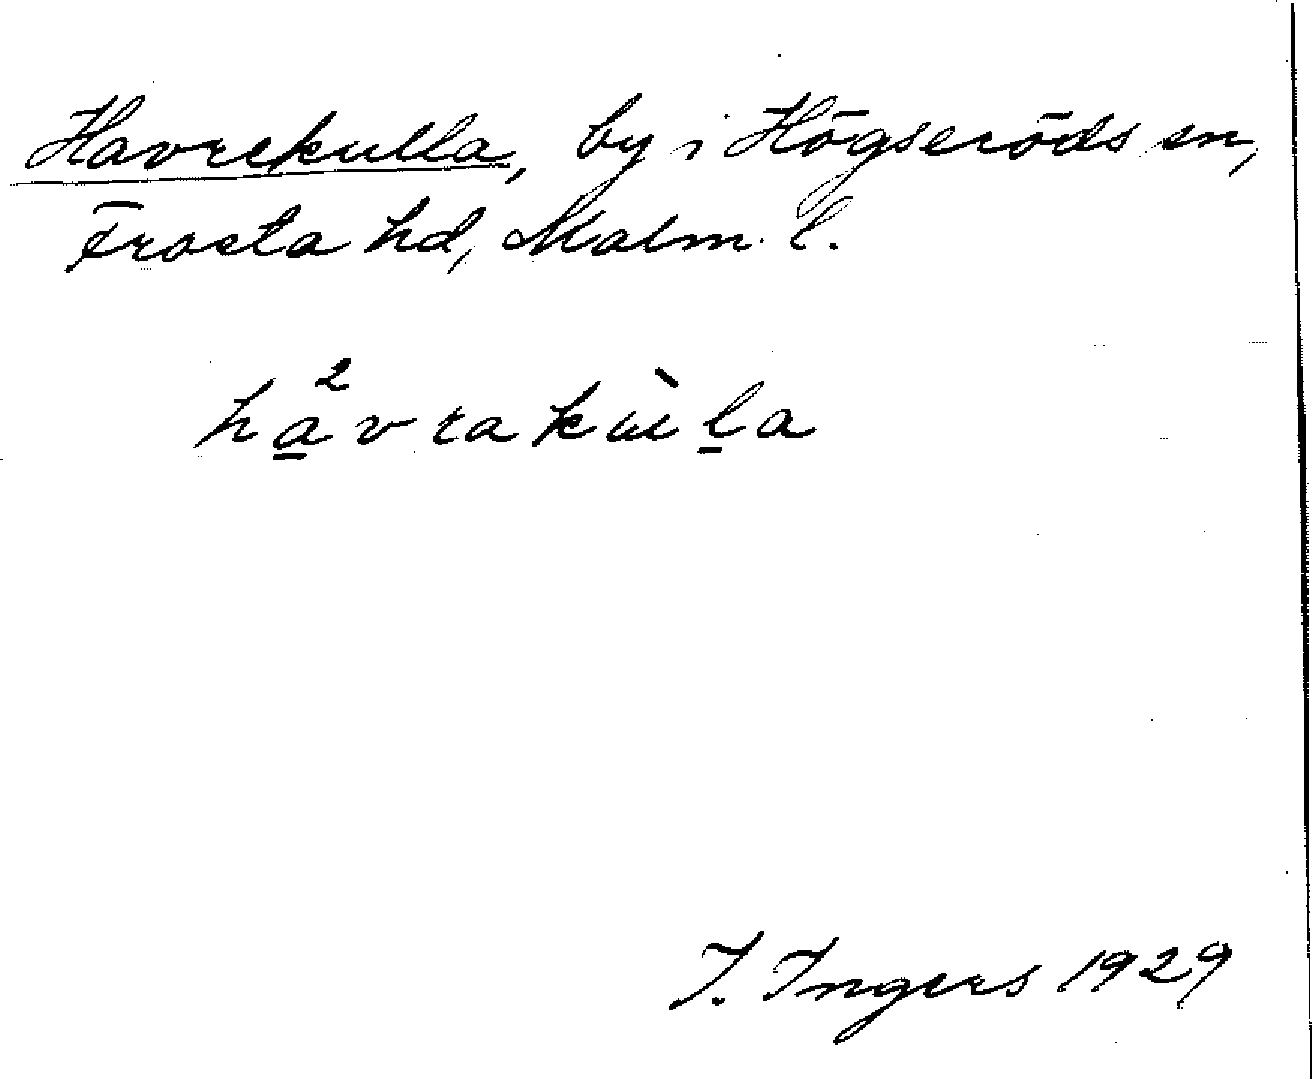 Havrekulla, by i Högseröds sn,
Frosta hd, Malm. l.
ha̲²vrakùl̲a
I. Ingers 1929